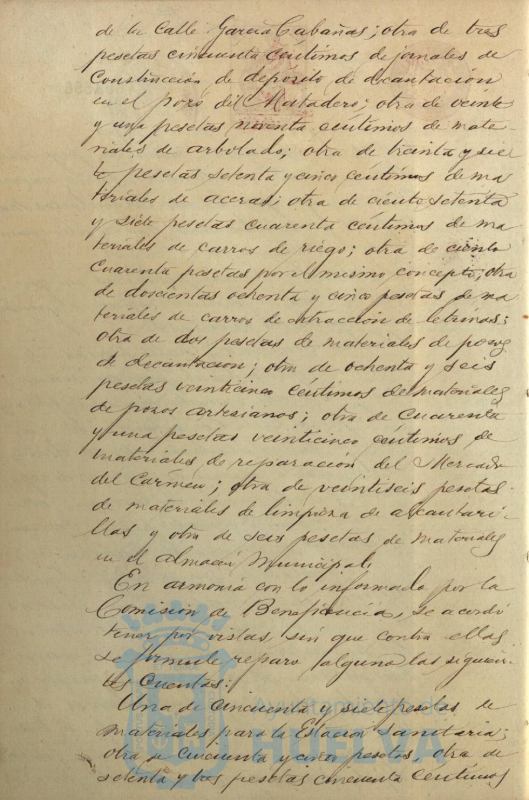 de la Calle García Cabañas; otra de tres
pesetas cincuenta céntimos de jornales de
Construcción de depósito de decantación
en el pozo del Matadero; otra de veinte
y una pesetas noventa céntimos de mate-
riales de arbolado; otra de treinta y sie-
te pesetas setenta y cinco céntimos de ma
teriales de aceras; otra de ciento setenta
y siete pesetas cuarenta céntimos de ma
teriales de carros de riego; otra de ciento
cuarenta pesetas por el mismo concepto; otra
de doscientas ochenta y cinco pesetas de ma
teriales de carros de extracción de letrinas;
otra de dos pesetas de materiales de pozos
de decantacion; otra de ochenta y seis
pesetas veinticinco céntimos de materiales
de pozos artesianos; otra de cuarenta
y una pesetas veinticinco céntimos de
materiales de reparación del Mercado
del Carmen; otra de veintiseis pesetas
de materiales de limpieza de alcantari-
llas y otra de seis pesetas de materiales
en el almacén municipal.
En armonía con lo informado por la
Comisión de Beneficencia, se acordó
tener por vistas, sin que contra ellas
se formule reparo alguno las siguien-
tes Cuentas:
Una de cincuenta y siete pesetas de
materiales para la Estación Sanitaria;
otra de cincuenta y cinco pesetas, otra de
setenta y tres pesetas cincuenta céntimos
HUELVA